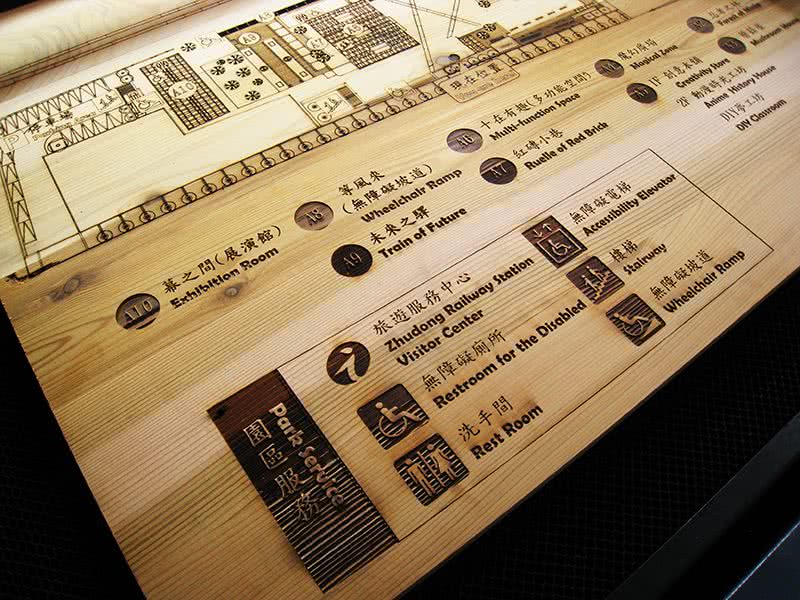 現在位置
A10
停車場
A10
幕之間(展演館)
Exhibition Room
A8
等風來
(無障礙坡道)
Wheelchair Ramp
A9
未來之驛
Train of Future
A6
十在有趣(多功能空間)
Multi-function Space
A7
紅磚小巷
Ruelle of Red Brick
魔幻廣場
Magical Zone
1F 創意賣舖
Creativity Store
2F 動漫時光工坊
Anime History House
DIY夢工坊
DIY Classroom
園區服務
Park service
旅遊服務中心
Zhudong Railway Station
Visitor Center
無障礙廁所
Restroom for the Disabled
洗手間
Rest Room
無障礙電梯
Accessibility Elevator
樓梯
Stairway
無障礙坡道
Wheelchair Ramp